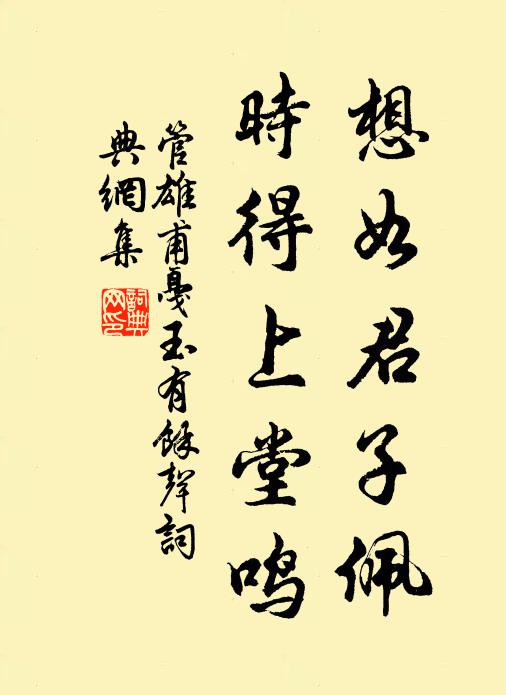 想如君子佩
時得上堂鳴
管雄甫戛玉有餘聲詞
典網集
詞典
网印